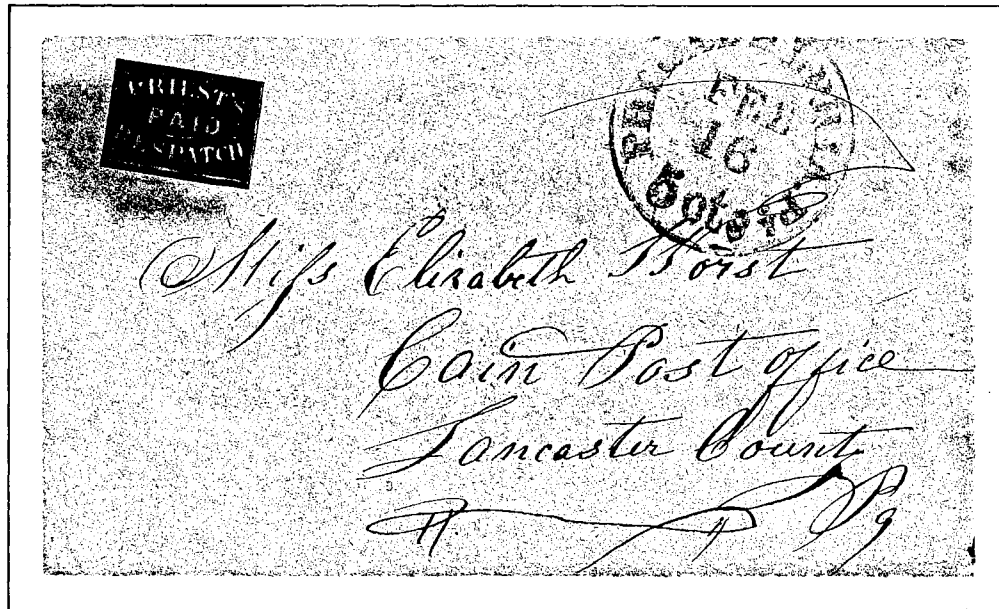 PRIEST'S
PAID
DESPATCH
PHILADELPHIA
FEB
16
5 cts
Miss Elizabeth Horst
Cain Post office
Lancaster County
Pa